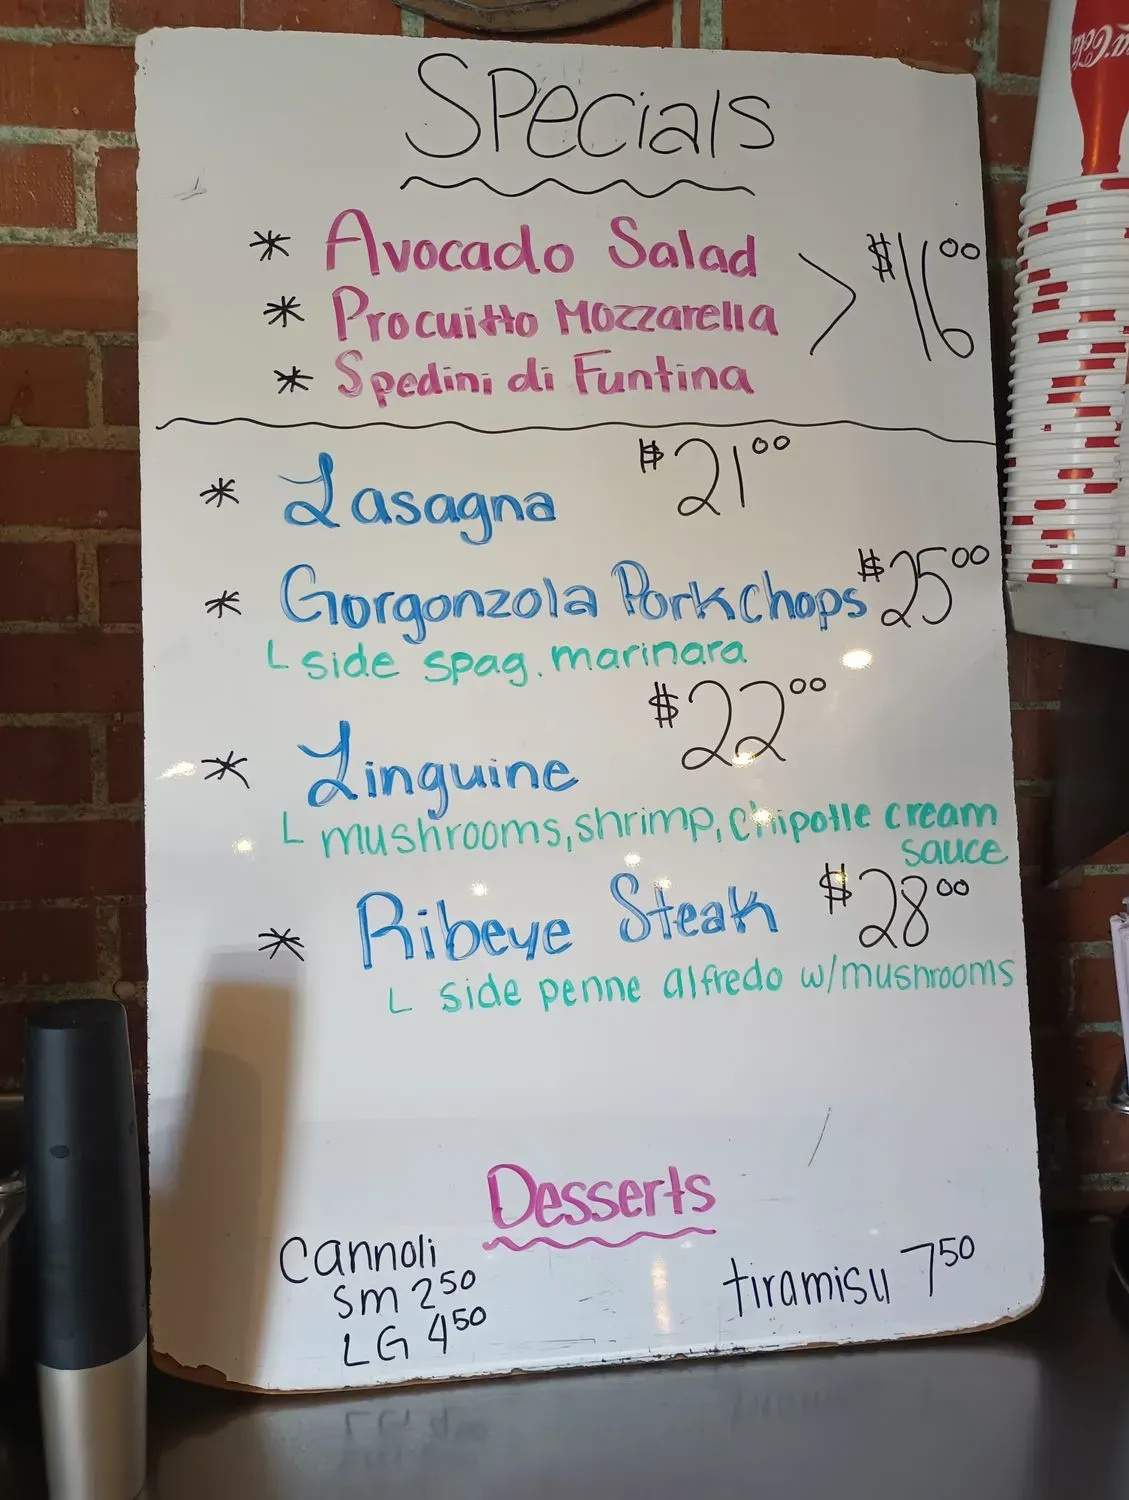 Specials
* Avocado Salad
* Procuitto Mozzarella
* Spedini di Funtina
> $16.00
* Lasagna $21.00
* Gorgonzola Pork chops $25.00
L side spag. marinara
* Linguine $22.00
L mushrooms, shrimp, chipotle cream
sauce
* Ribeye Steak $28.00
L side penne alfredo w/mushrooms
Desserts
Cannoli
sm 2.50
LG 4.50
tiramisu 7.50